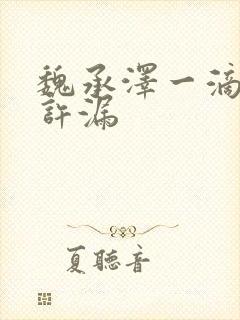 魏承澤一滴
許漏
夏聽音